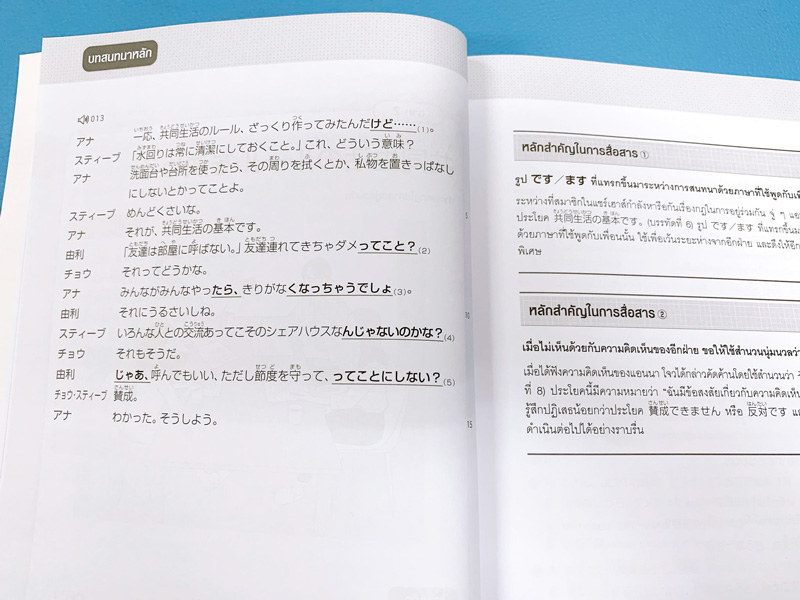 บทสนทนาหลัก
013
アナ 一応、共同生活のルール、ざっくり作ってみたんだけど……(1)。
スティーブ 「水回りは常に清潔にしておくこと。」これ、どういう意味?
アナ 洗面台や台所を使ったら、その周りを拭くとか、私物を置きっぱなし
にしないとかってことよ。
スティーブ めんどくさいな。
5
アナ それが、共同生活の基本です。
由利 「友達は部屋に呼ばない。」友達連れてきちゃダメってこと?(2)
チョウ それってどうかな。
アナ みんながみんなやったら、きりがなくなっちゃうでしょ(3)。
由利 それにうるさいしね。
10
スティーブ いろんな人との交流あってこそのシェアハウスなんじゃないのかな?(4)
チョウ それもそうだ。
由利 じゃあ、呼んでもいい、ただし節度を守って、ってことにしない?(5)
チョウ・スティーブ 賛成。
アナ わかった。そうしよう。
15
หลักสำคัญในการสื่อสาร ①
รูป です／ます ที่แทรกขึ้นมาระหว่างการสนทนาด้วยภาษาที่ใช้พูดกับเพื่
ระหว่างที่สมาชิกในแชร์เฮาส์กำลังหารือกันเรื่องกฎในการอยู่ร่วมกัน จู่ ๆ
ประโยค 共同生活の基本です。(บรรทัดที่ 6) รูป です／ます ที่แทรกขึ้นม
ด้วยภาษาที่ใช้พูดกับเพื่อนนั้น ใช้เพื่อเว้นระยะห่างจากอีกฝ่าย และดึงให้อีก
พิเศษ
หลักสำคัญในการสื่อสาร ②
เมื่อไม่เห็นด้วยกับความคิดเห็นของอีกฝ่าย ขอให้ใช้สำนวนนุ่มนวลว่า
เมื่อได้ฟังความคิดเห็นของแอนนา โจวได้กล่าวคัดค้านโดยใช้สำนวนว่า
ที่ 8) ประโยคนี้มีความหมายว่า "ฉันมีข้อสงสัยเกี่ยวกับความคิดเห็น
รู้สึกปฏิเสธน้อยกว่าประโยค 賛成できません หรือ 反対です
ดำเนินต่อไปได้อย่างราบรื่น